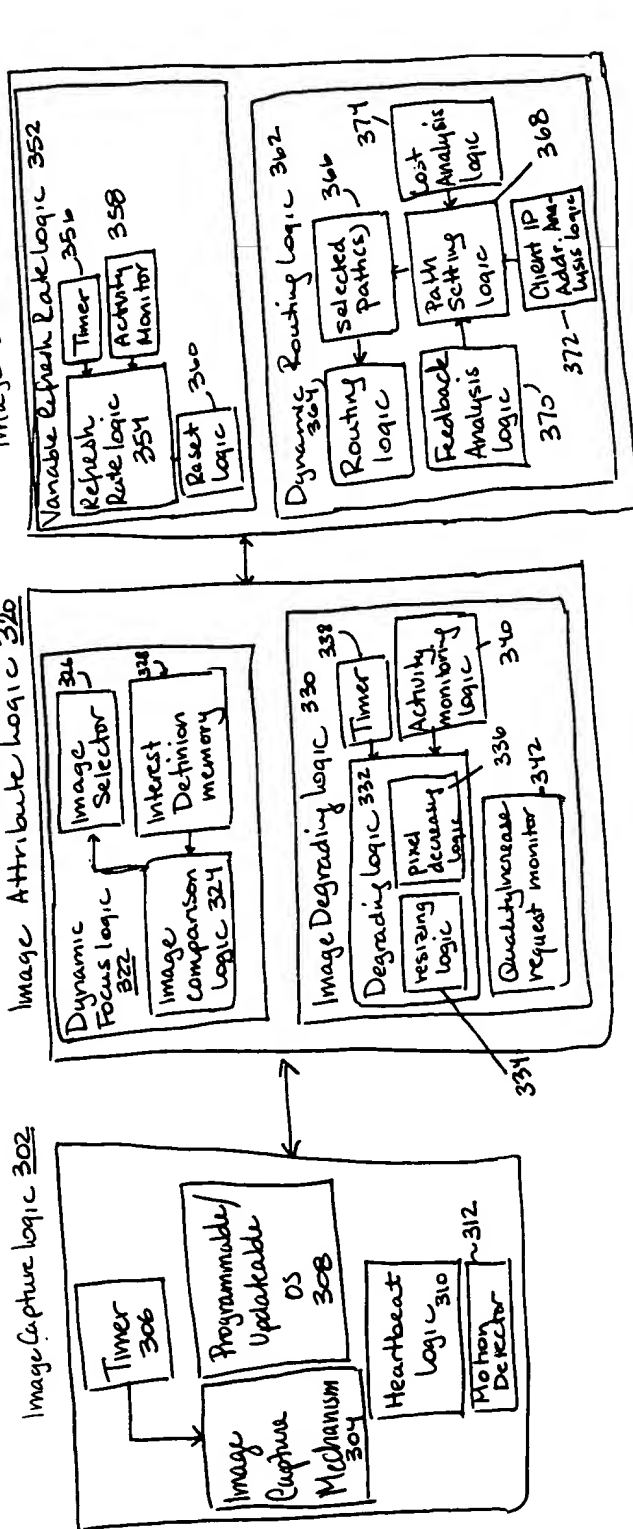 Image Capture Logic 302
Timer
306
Image
Capture
Mechanism
304
Programmable/
Updateable
OS
308
Heartbeat
Logic 310
Motion
Detector
312
Image Attribute Logic 320
Dynamic
Focus logic
322
Image
Selector
326
Interest
Definion
memory
328
Image
comparison
logic 324
Image Degrading Logic 330
Degrading logic 332
resizing
logic
334
pixel
decreasing
logic
336
Timer
338
Activity
monitoring
logic
340
Quality Increase
request monitor
342
Variable Refresh Rate logic 352
Refresh
Rate logic
354
Timer
356
Activity
Monitor
358
Reset
Logic
360
Dynamic Routing Logic 362
364
Routing
logic
selected
path(s)
366
Path
Setting
logic
368
Feedback
Analysis
Logic
370
Client IP
Addr. Ana-
lysis logic
372
Cost
Analysis
logic
374